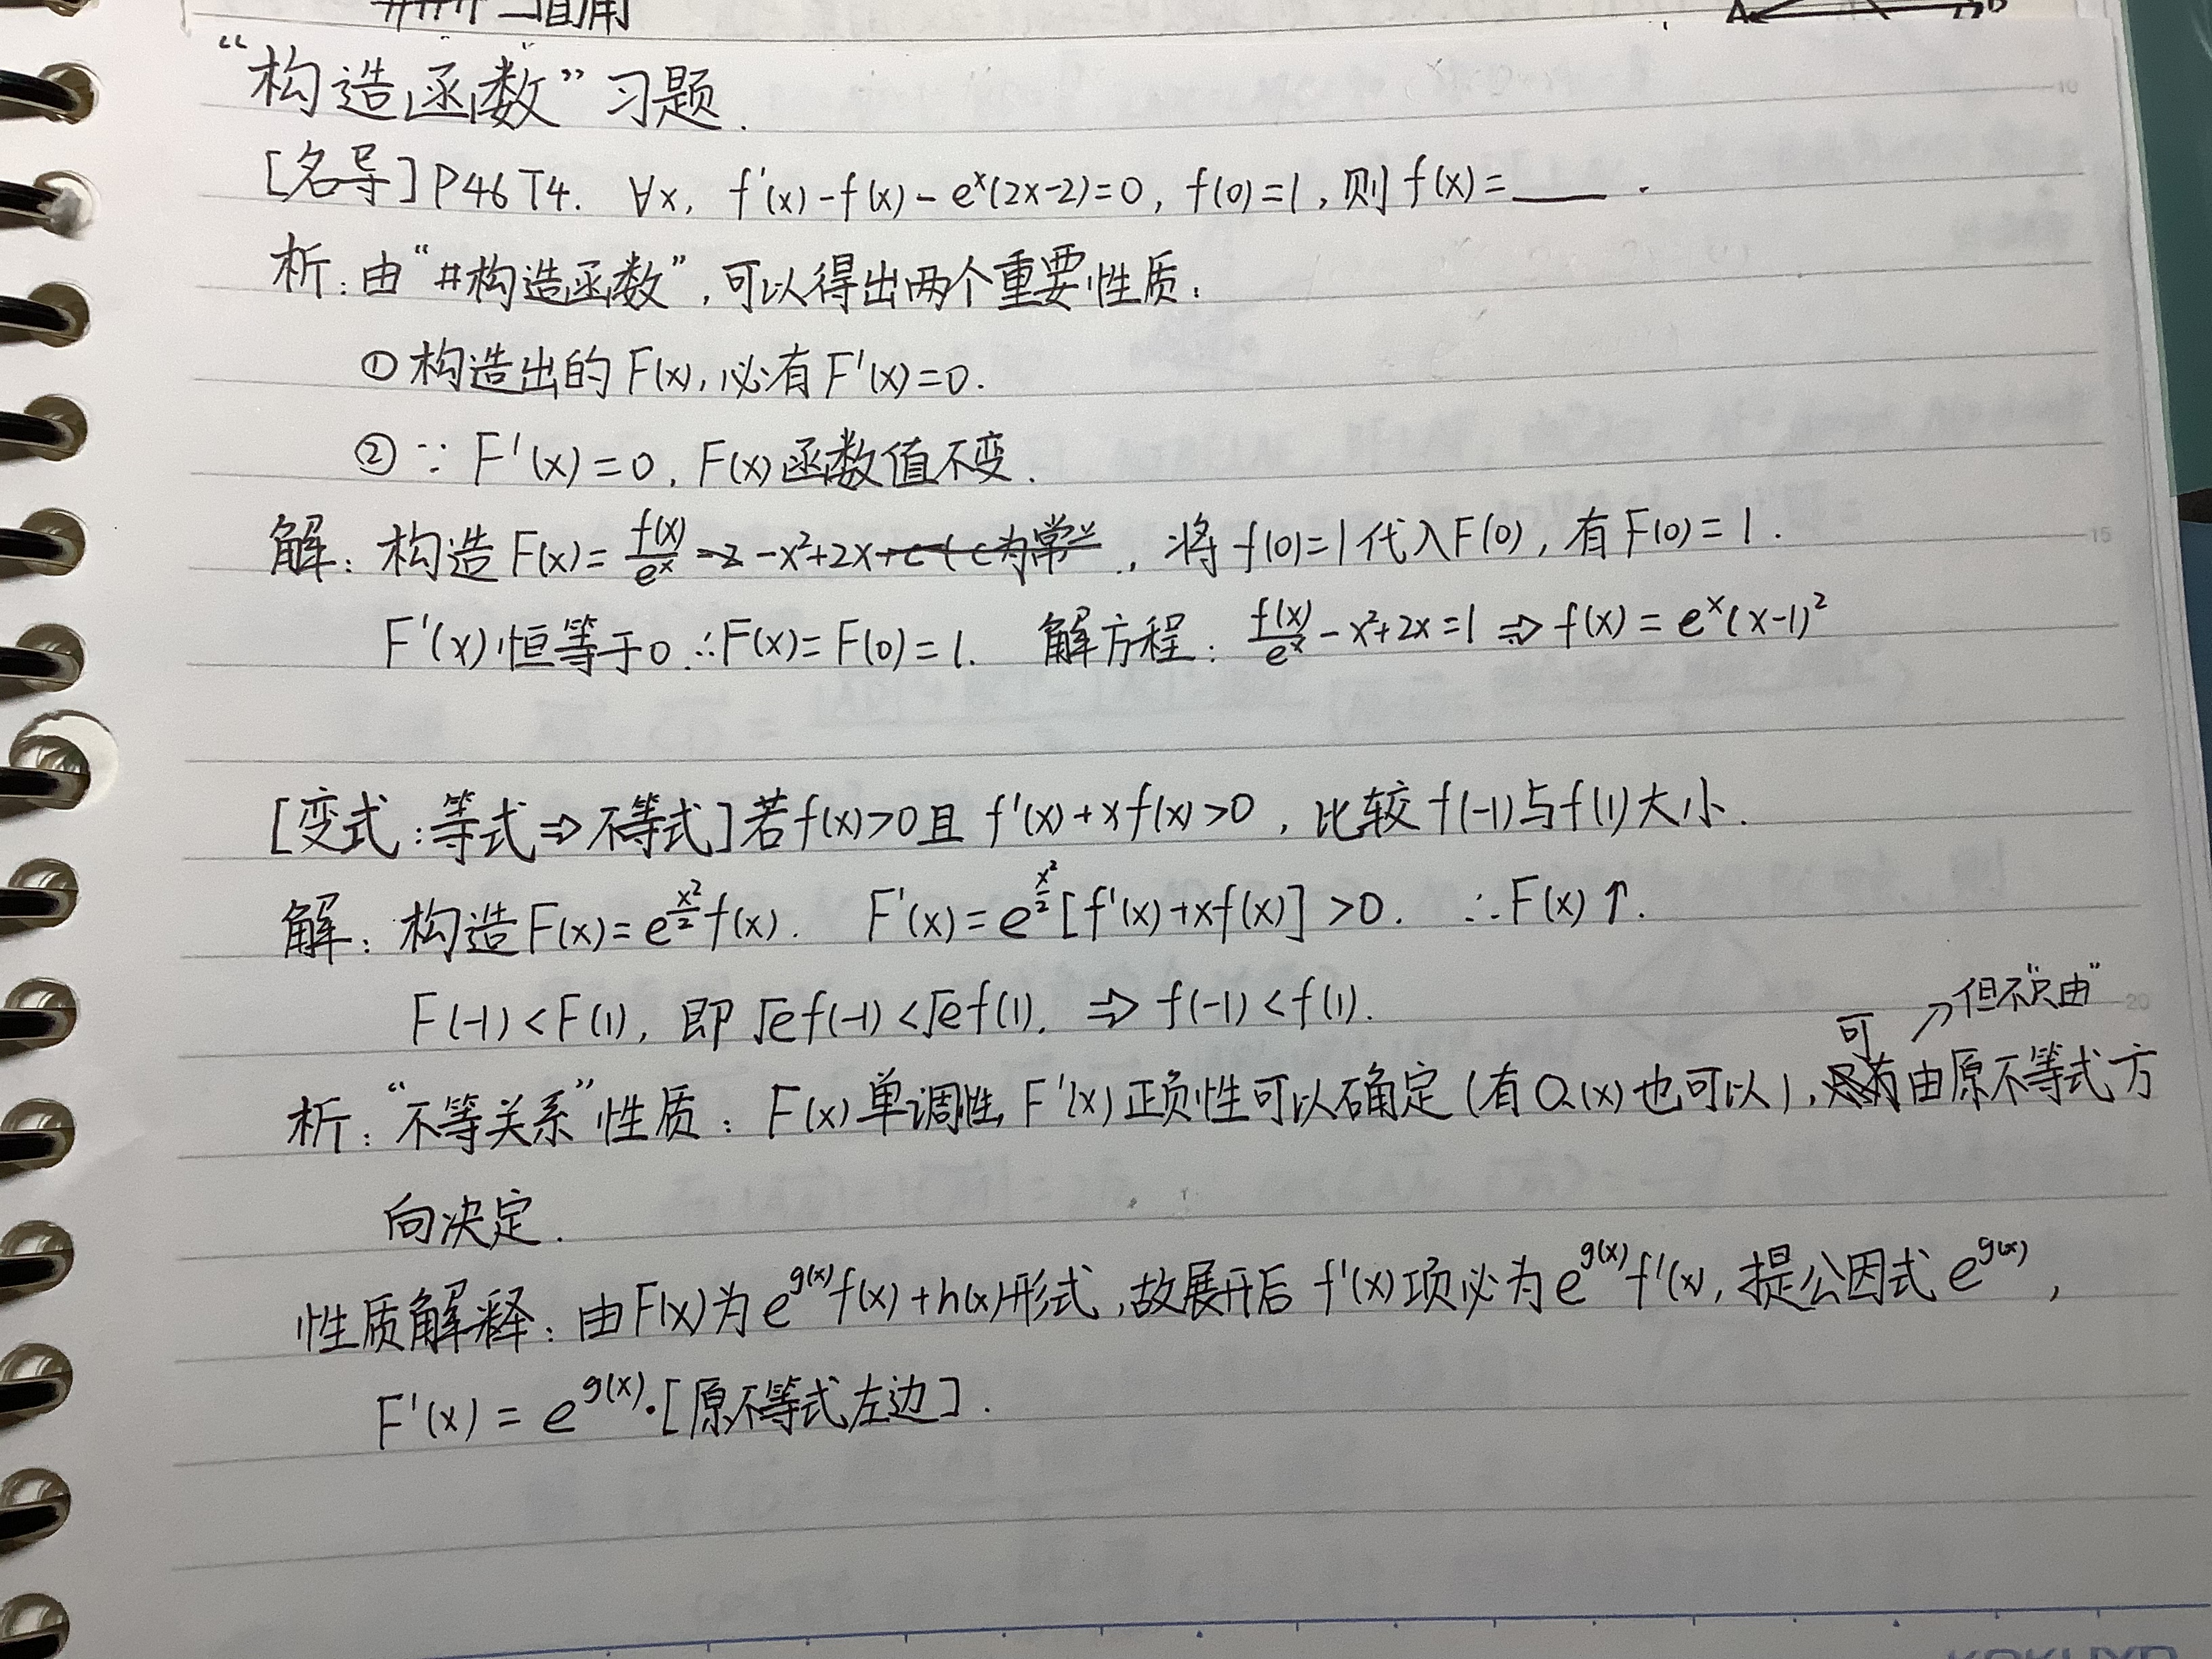 “构造函数”习题.
[名导]P46 T4. ∀x, f'(x)-f(x)-eˣ(2x-2)=0, f(0)=1, 则 f(x)=____.
析: 由“#构造函数”, 可以得出两个重要性质:
①构造出的F(x), 必有F'(x)=0.
②∵F'(x)=0, F(x)函数值不变.
解: 构造F(x)=f(x)/eˣ -x²+2x, 将f(0)=1代入F(0), 有F(0)=1.
F'(x)恒等于0.∴F(x)=F(0)=1. 解方程: f(x)/eˣ-x²+2x=1⇒f(x)=eˣ(x-1)²
[变式:等式⇒不等式]若f(x)>0且f'(x)+xf(x)>0, 比较f(-1)与f(1)大小.
解: 构造F(x)=e^(x²/2)f(x). F'(x)=e^(x²/2)[f'(x)+xf(x)]>0. ∴F(x)↑.
F(-1)<F(1), 即√ef(-1)<√ef(1). ⇒f(-1)<f(1).
可 ↗但不“只由”
析: “不等关系”性质: F(x)单调性, F'(x)正负性可以确定(有Q(x)也可以), 由原不等式方
向决定.
性质解释: 由F(x)为e^g(x)f(x)+h(x)形式, 故展开后f'(x)项必为e^g(x)f'(x), 提公因式e^g(x),
F'(x)=e^g(x)·[原不等式左边].